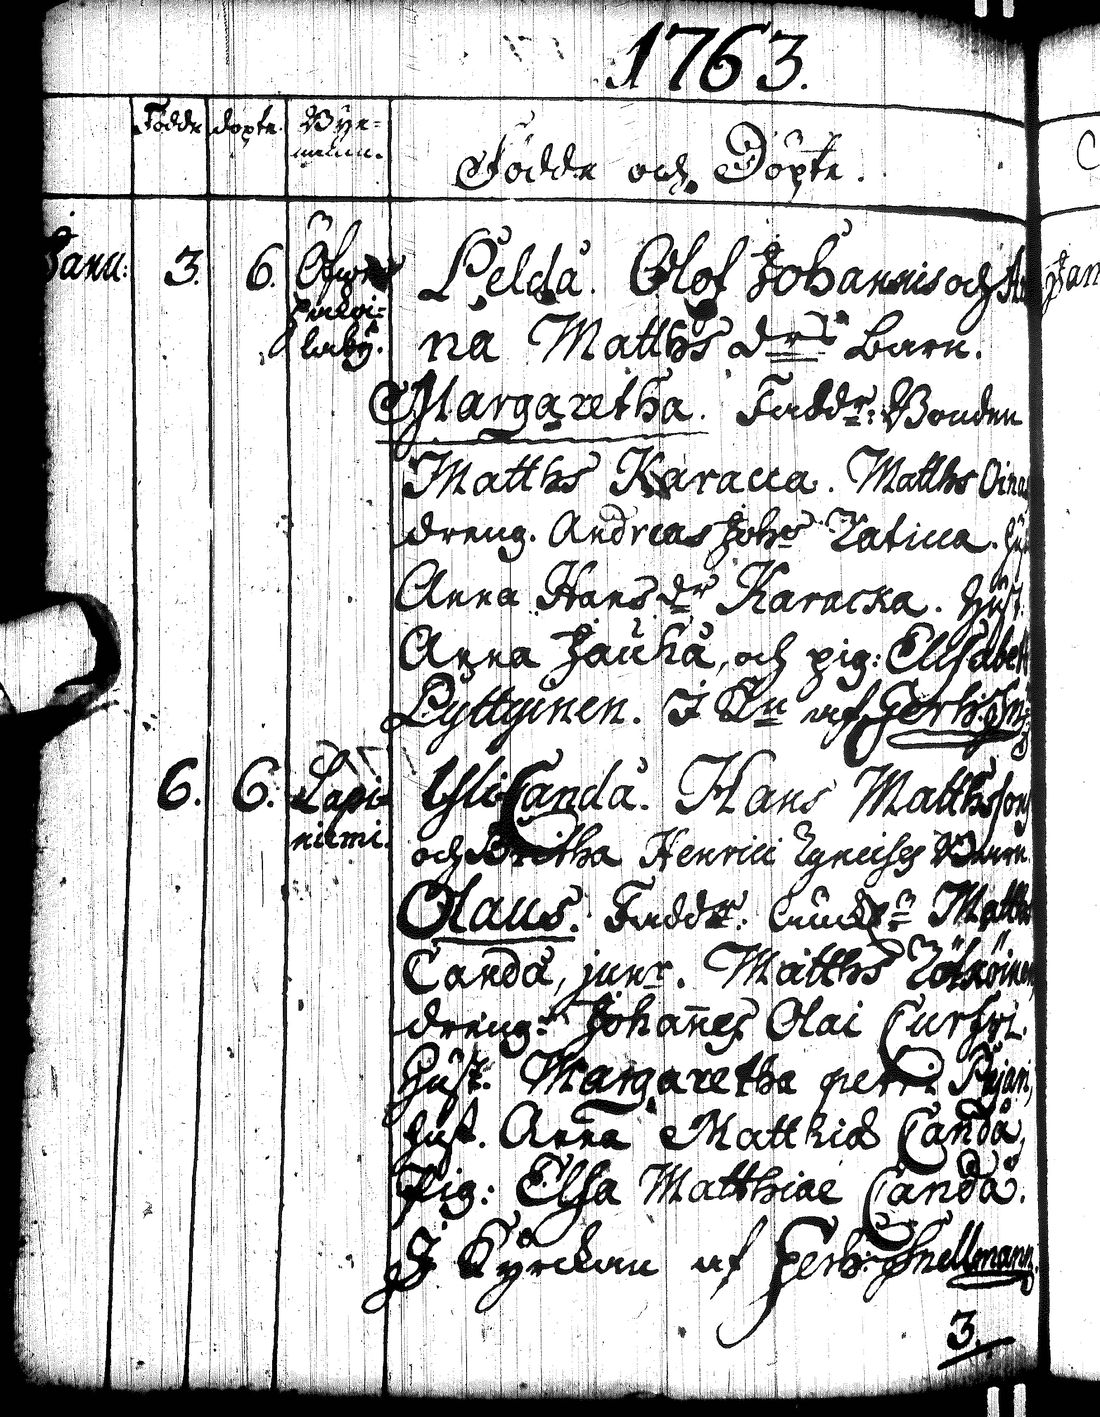 1763.
Födde döpte. Bye-
namn.
Födde och Döpte.
Janu: 3. 6. Öfwer
laby.
Peldå. Olof Johannis och An
na Matths drs Barn.
Margaretha. Faddr: Bonden
Matths Karacca. Matths Oina
dreng. Andreas Johs Ratica.
Anna Hans dr Karacka. Hust.
Anna Jauhå, och pig: Elisabet
Pyttynen. I Kn af Herr
6. 6. Lapi
niemi.
Canda. Hans Matthsson
och Bretha Henrici Barn.
Olaus. Faddr:  Matths
Canda, junr. Matths
dreng: Johañes Olai Cursri.
Hust. Margaretha petri
hust. Anna Matthiæ Canda,
Pig: Elsa Matthiae Canda.
I Kyrckan af Herr Snellmann.
3.